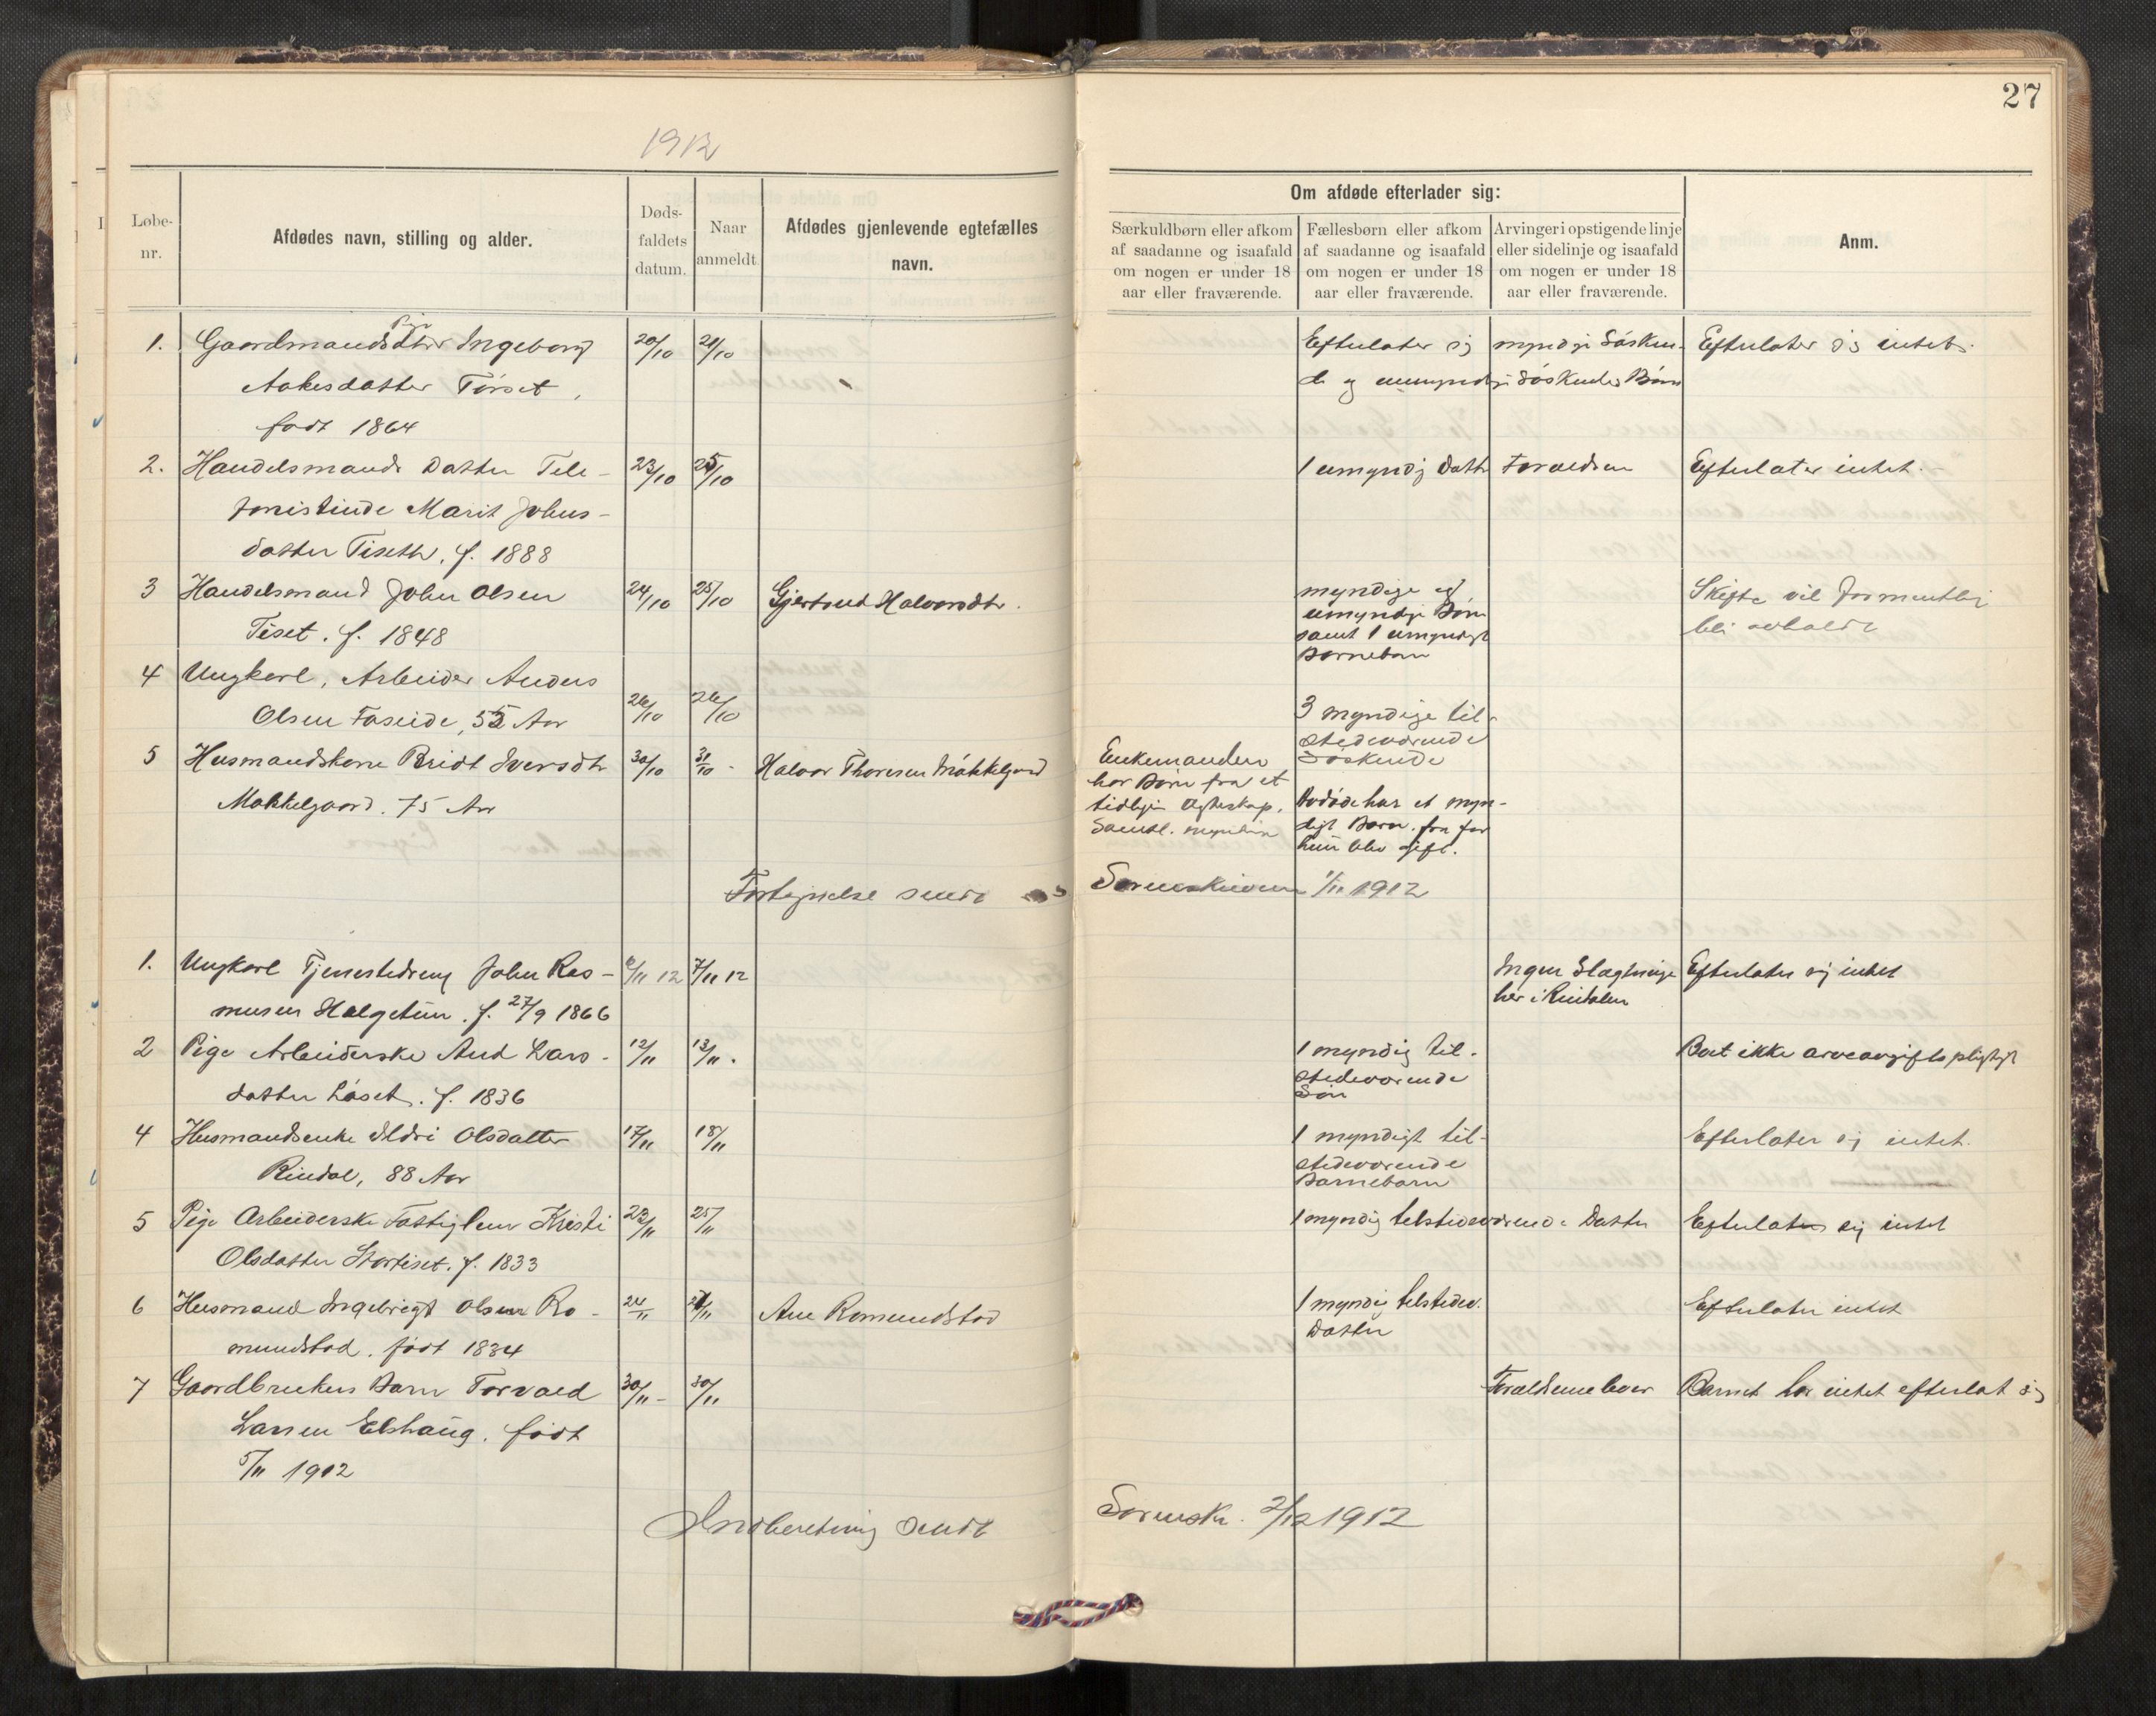 27
1912
Løbe-
nr.
Afdødes navn, stilling og alder.
Døds-
faldets
datum.
Naar
anmeldt
Afdødes gjenlevende egtefælles
navn.
Om afdøde efterlader sig:
Særkuldbørn eller afkom
af saadanne og isaafald
om nogen er under 18
aar eller fraværende.
Fællesbørn eller afkom
af saadanne og isaafald
om nogen er under 18
aar eller fraværende.
Arvinger i opstigende linje
eller sidelinje og isaafald
om nogen er under 18
aar eller fraværende.
Anm.
1. Gaardmandsdtr Pige Ingeborg 20/10 21/10 Efterlater sig myndige Søsken- Efterlater sig intet.
Aakesdatter Tørset, de og umyndige Søskendes Børn
født 1864
2. Handelsmands Datter Tele- 23/10 25/10 1 umyndig Datter Forældre Efterlater intet.
fonistinde Marit Johns-
datter Tiseth, f. 1888
3 Handelsmand John Olsen 24/10 25/10 Gjertrud Halvorsdtr.
Tiset. f. 1848
myndige og
umyndige Børn
samt 1 umyndigt
Barnebarn
Skifte vil formentlig
bli avholdt
4 Ungkarl, Arbeider Anders
Olsen Faseide, 55 Aar 26/10 26/10
3 myndige til-
stedeværende
Søskende
5 Husmandskone Bridt Iversdtr 30/10 31/10 - Halvor Thoresen Møkkelgaard
Møkkelgaard. 75 Aar
Enkemanden
har Børn fra et
tidligere Ægteskap.
Samtl. myndige
Avdøde har et myn-
digt Barn fra før
hun blev gift.
Fortegnelse sendt Sorenskriveren 1/11 1912
1. Ungkarl Tjenestedreng John Ras- 6/11 12 7/11 12 Ingen Slægtninge Efterlater sig intet
musen Halgetun. f. 27/9 1866 her i Rindalen
2 Pige Arbeiderske And Lars- 12/11 13/11. 1 myndig til- Boet ikke arveavgiftspligtigt
datter Løset. f. 1836 stedeværende
Søn
4 Husmandsenke Ildri Olsdatter 17/11 18/11 1 myndigt til- Efterlater sig intet.
Rindal, 88 Aar stedeværende
Barnebarn
5 Pige Arbeiderske Fattiglem Kristi 23/11 25/11 1 myndig tilstedeværende Datter Efterlater sig intet
Olsdatter Stortiset. f. 1833
6 Husmand Ingebrigt Olsen Ro- 24/11 Ane Romundstad 1 myndig tilstedev. Efterlater intet
mundstad. født 1834 Datter
7 Gaardbrukers Barn Torvald 30/11 - 30/11 Forældrene lever Barnet har intet efterlat sig
Larsen Elshaug. født
5/11 1912
Indberetning sendt Sorensk. 2/12 1912